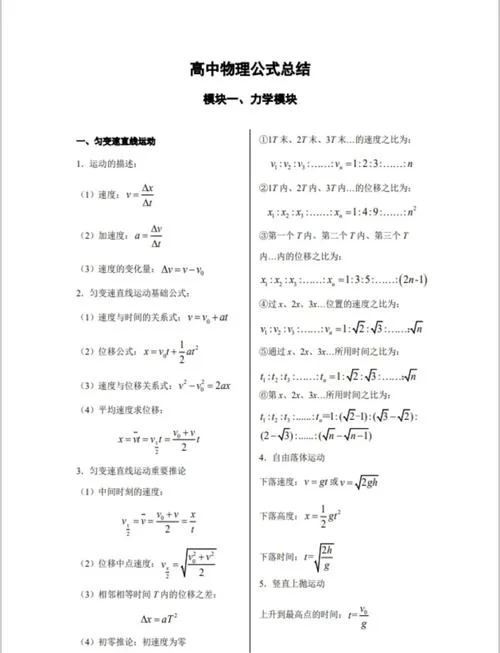 高中物理公式总结
模块一、力学模块
一、匀变速直线运动
1．运动的描述：
（1）速度：v=Δx/Δt
（2）加速度：a=Δv/Δt
（3）速度的变化量：Δv=v-v₀
2．匀变速直线运动基础公式：
（1）速度与时间的关系式：v=v₀+at
（2）位移公式：x=v₀t+1/2at²
（3）速度与位移关系式：v²-v₀²=2ax
（4）平均速度求位移：
x=v̄t=v_{t/2}t=(v₀+v)/2 t
3．匀变速直线运动重要推论
（1）中间时刻的速度：
v_{t/2}=v̄=(v₀+v)/2=x/t
（2）位移中点速度：v_{x/2}=√((v₀²+v²)/2)
（3）相邻相等时间 T 内的位移之差：
Δx=aT²
（4）初零推论：初速度为零
①1T 末、2T 末、3T 末…的速度之比为：
v₁:v₂:v₃:……:vₙ=1:2:3:……:n
②1T 内、2T 内、3T 内…的位移之比为：
x₁:x₂:x₃:……:xₙ=1:4:9:……:n²
③第一个 T 内、第二个 T 内、第三个 T
内…内的位移之比为：
x₁:x₂:x₃:……:xₙ=1:3:5:……:(2n-1)
④过 x、2x、3x…位置的速度之比为：
v₁:v₂:v₃:……:vₙ=1:√2:√3:……:√n
⑤通过 x、2x、3x…所用时间之比为：
t₁:t₂:t₃:……:tₙ=1:√2:√3:……:√n
⑥第 x、2x、3x…所用时间之比为：
t₁:t₂:t₃:……:tₙ=1:(√2-1):(√3-√2):
(2-√3):……:(√n-√n-1)
4．自由落体运动
下落速度：v=gt 或 v=√2gh
下落高度：x=1/2gt²
下落时间：t=√(2h/g)
5．竖直上抛运动
上升到最高点的时间：t=v₀/g